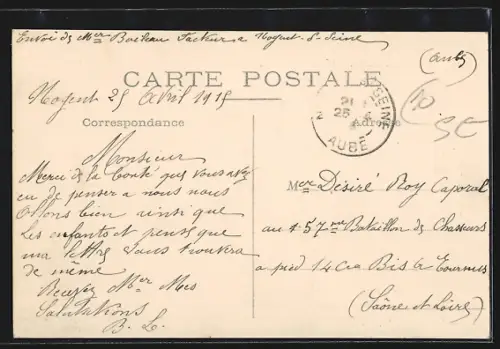 Envoi de Mer Boileau Facteur a Nogent-S-Seine
(Aube)
CARTE POSTALE
Nogent 25 Avril 1915
Correspondance
Adresse
SEINE
21
25
AUBE
Monsieur
Merci de la Bonté que vous avez
eu de penser a nous nous
allons bien ainsi que
les enfants et pense que
ma lettre vous trouvera
de même
Recevez Mer Mes
Salutations
B. L.
Mer Désiré Roy Caporal
au 57me Bataillon de Chasseurs
a pied 14 Cie Bis a Tournus
(Saône et Loire)